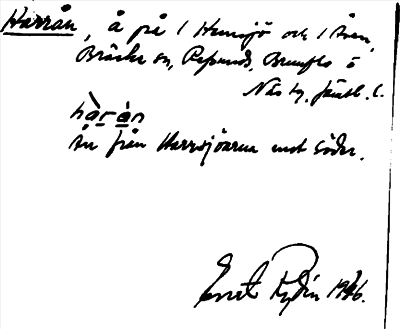 Harrån, å på / Hemsjö och / Åsen,
Bräcke sn, Refsunds, Brunflo o
Näs tg, Jämtl. l.
hàràn
Ån från Harrsjöarna mot söder.
Ernst 1946.